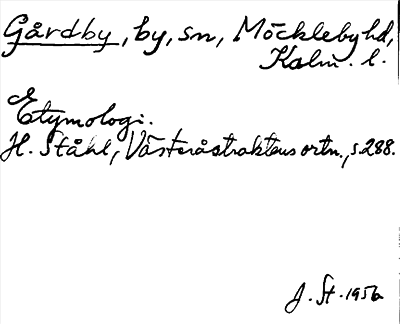 Gårdby, by, sn, Möckleby hd,
Kalm. l.
Etymologi.
H. Ståhl, Västeråstraktens ortn., s. 288.
J. St. 1956